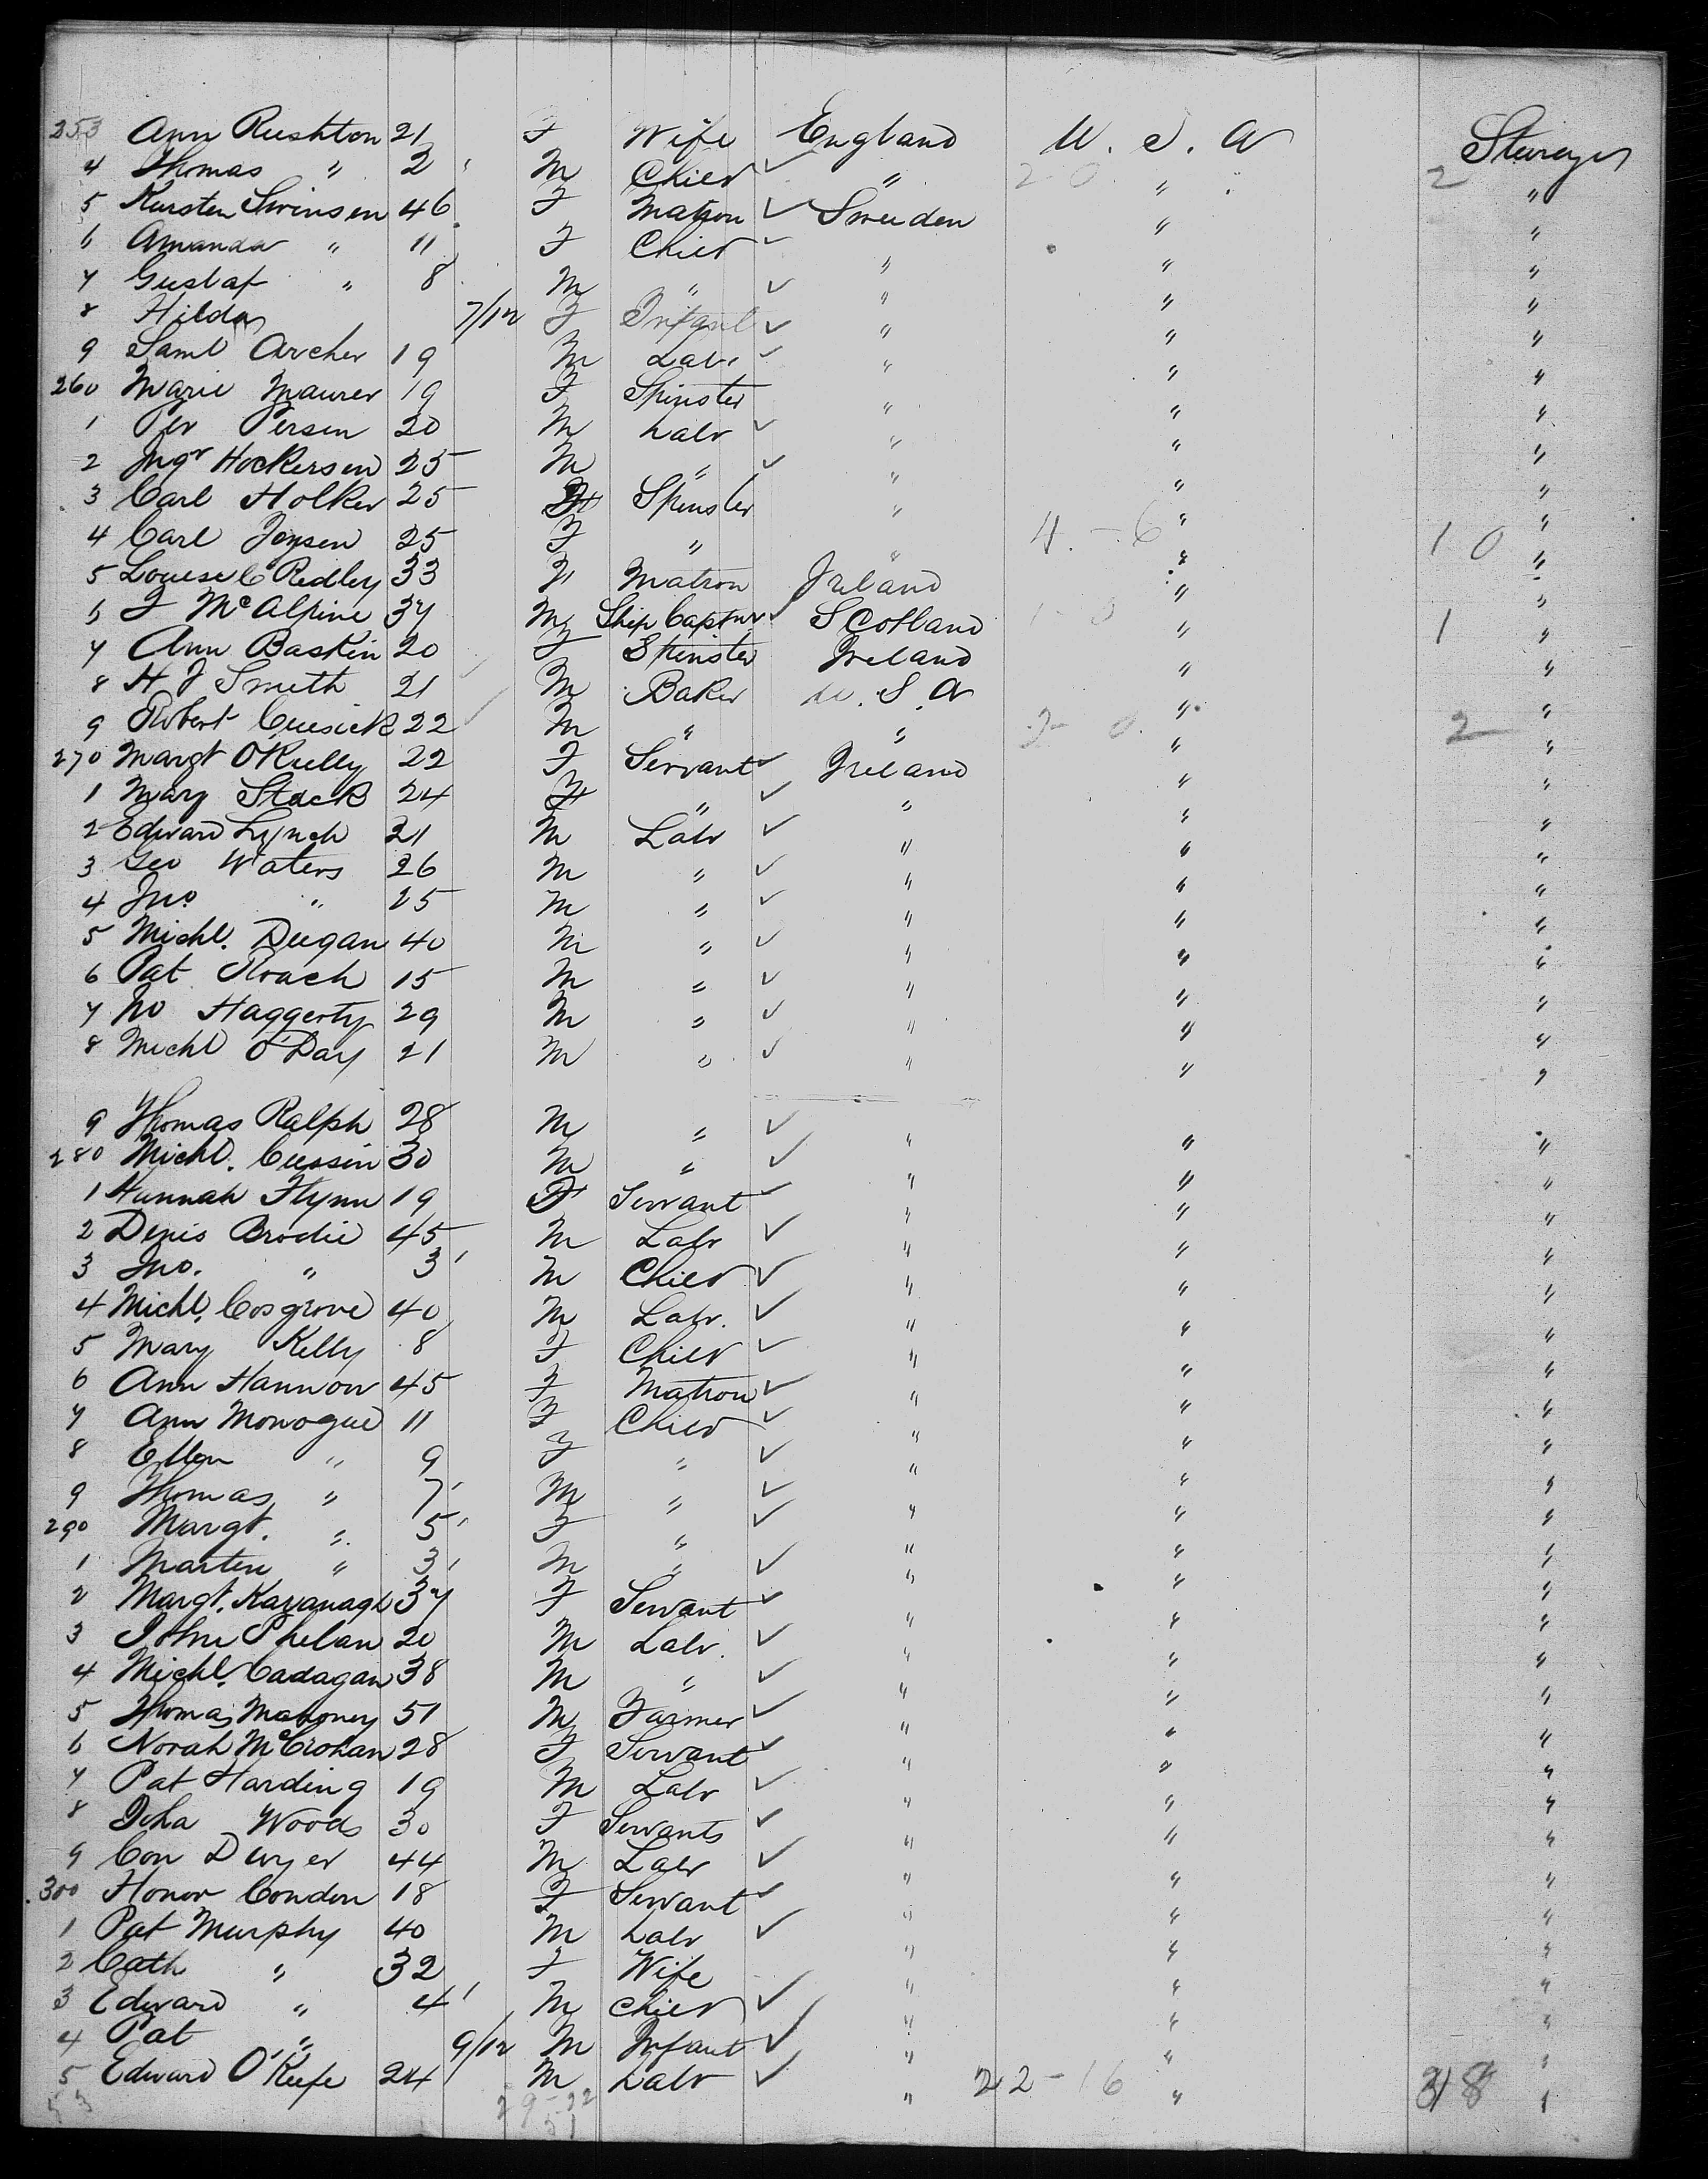 253 Ann Rushton 21 F Wife England U. S. A Steerage
4 Thomas " 2 M Child ✓ " 2 0 " 2 "
5 Kersten Swinsen 46 F Matron ✓ Sweden " "
6 Amanda " 11 F Child ✓ " " "
7 Gustaf " 8 M " ✓ " " "
8 Hilda 7/12 F Infant ✓ " " "
9 Saml Archer 19 M Labr ✓ " " "
260 Marie Maurer 19 F Spinster " " "
1 Per Persen 20 M Labr ✓ " " "
2 Ingr Hockersen 25 M " ✓ " " "
3 Carl Holker 25 F Spinster " " "
4 Carl Jensen 25 F " " 4 - 6 " 10 "
5 Louise C Redley 33 F Matron Ireland " "
6 J McAlpine 37 M Ship Captn ✓ Scotland 1 - 3 " 1 "
7 Ann Baskin 20 F Spinster Ireland " "
8 H J Smith 21 M Baker U. S. A " "
9 Robert Cusick 22 M " " 2 - 0 " 2 "
270 Margt O'Kelly 22 F Servant ✓ Ireland " "
1 Mary Stack 24 F " ✓ " " "
2 Edward Lynch 21 M Labr ✓ " " "
3 Geo Waters 26 M " ✓ " " "
4 Jno. " 25 M " ✓ " " "
5 Michl. Deegan 40 M " ✓ " " "
6 Pat Roach 15 M " ✓ " " "
7 Haggerty 29 M " ✓ " " "
8 Michl O'Day 21 M " ✓ " " "
9 Thomas Ralph 28 M " ✓ " " "
280 Michl. Cussin 30 M " ✓ " " "
1 Hannah Flynn 19 F Servant ✓ " " "
2 Denis Brodie 45 M Labr ✓ " " "
3 Jno. " 3 M Child ✓ " " "
4 Michl. Cosgrove 40 M Labr. ✓ " " "
5 Mary Kelly 8 F Child ✓ " " "
6 Ann Hannon 45 F Matron ✓ " " "
7 Ann Monogue 11 F Child ✓ " " "
8 Ellen " 9 F " ✓ " " "
9 Thomas " 7 M " ✓ " " "
290 Margt. " 5 F " ✓ " " "
1 Martin " 3 M " ✓ " " "
2 Margt. Kavanagh 37 F Servant ✓ " " "
3 John Phelan 20 M Labr. ✓ " " "
4 Michl. Cadagan 38 M " ✓ " " "
5 Thomas Mahoney 51 M Farmer ✓ " " "
6 Norah McCrohan 28 F Servant ✓ " " "
7 Pat Harding 19 M Labr ✓ " " "
8 Joha Woods 30 F Servants ✓ " " "
9 Con Dwyer 44 M Labr ✓ " " "
300 Honor Condon 18 F Servant ✓ " " "
1 Pat Murphy 40 M Labr ✓ " " "
2 Cath " 32 F Wife " " "
3 Edward " 4 M Child ✓ " " "
4 Pat " 9/12 M Infant ✓ " " "
5 Edward O'Keefe 24 M Labr ✓ " 22 - 16 " 38 "
53 29-22
51